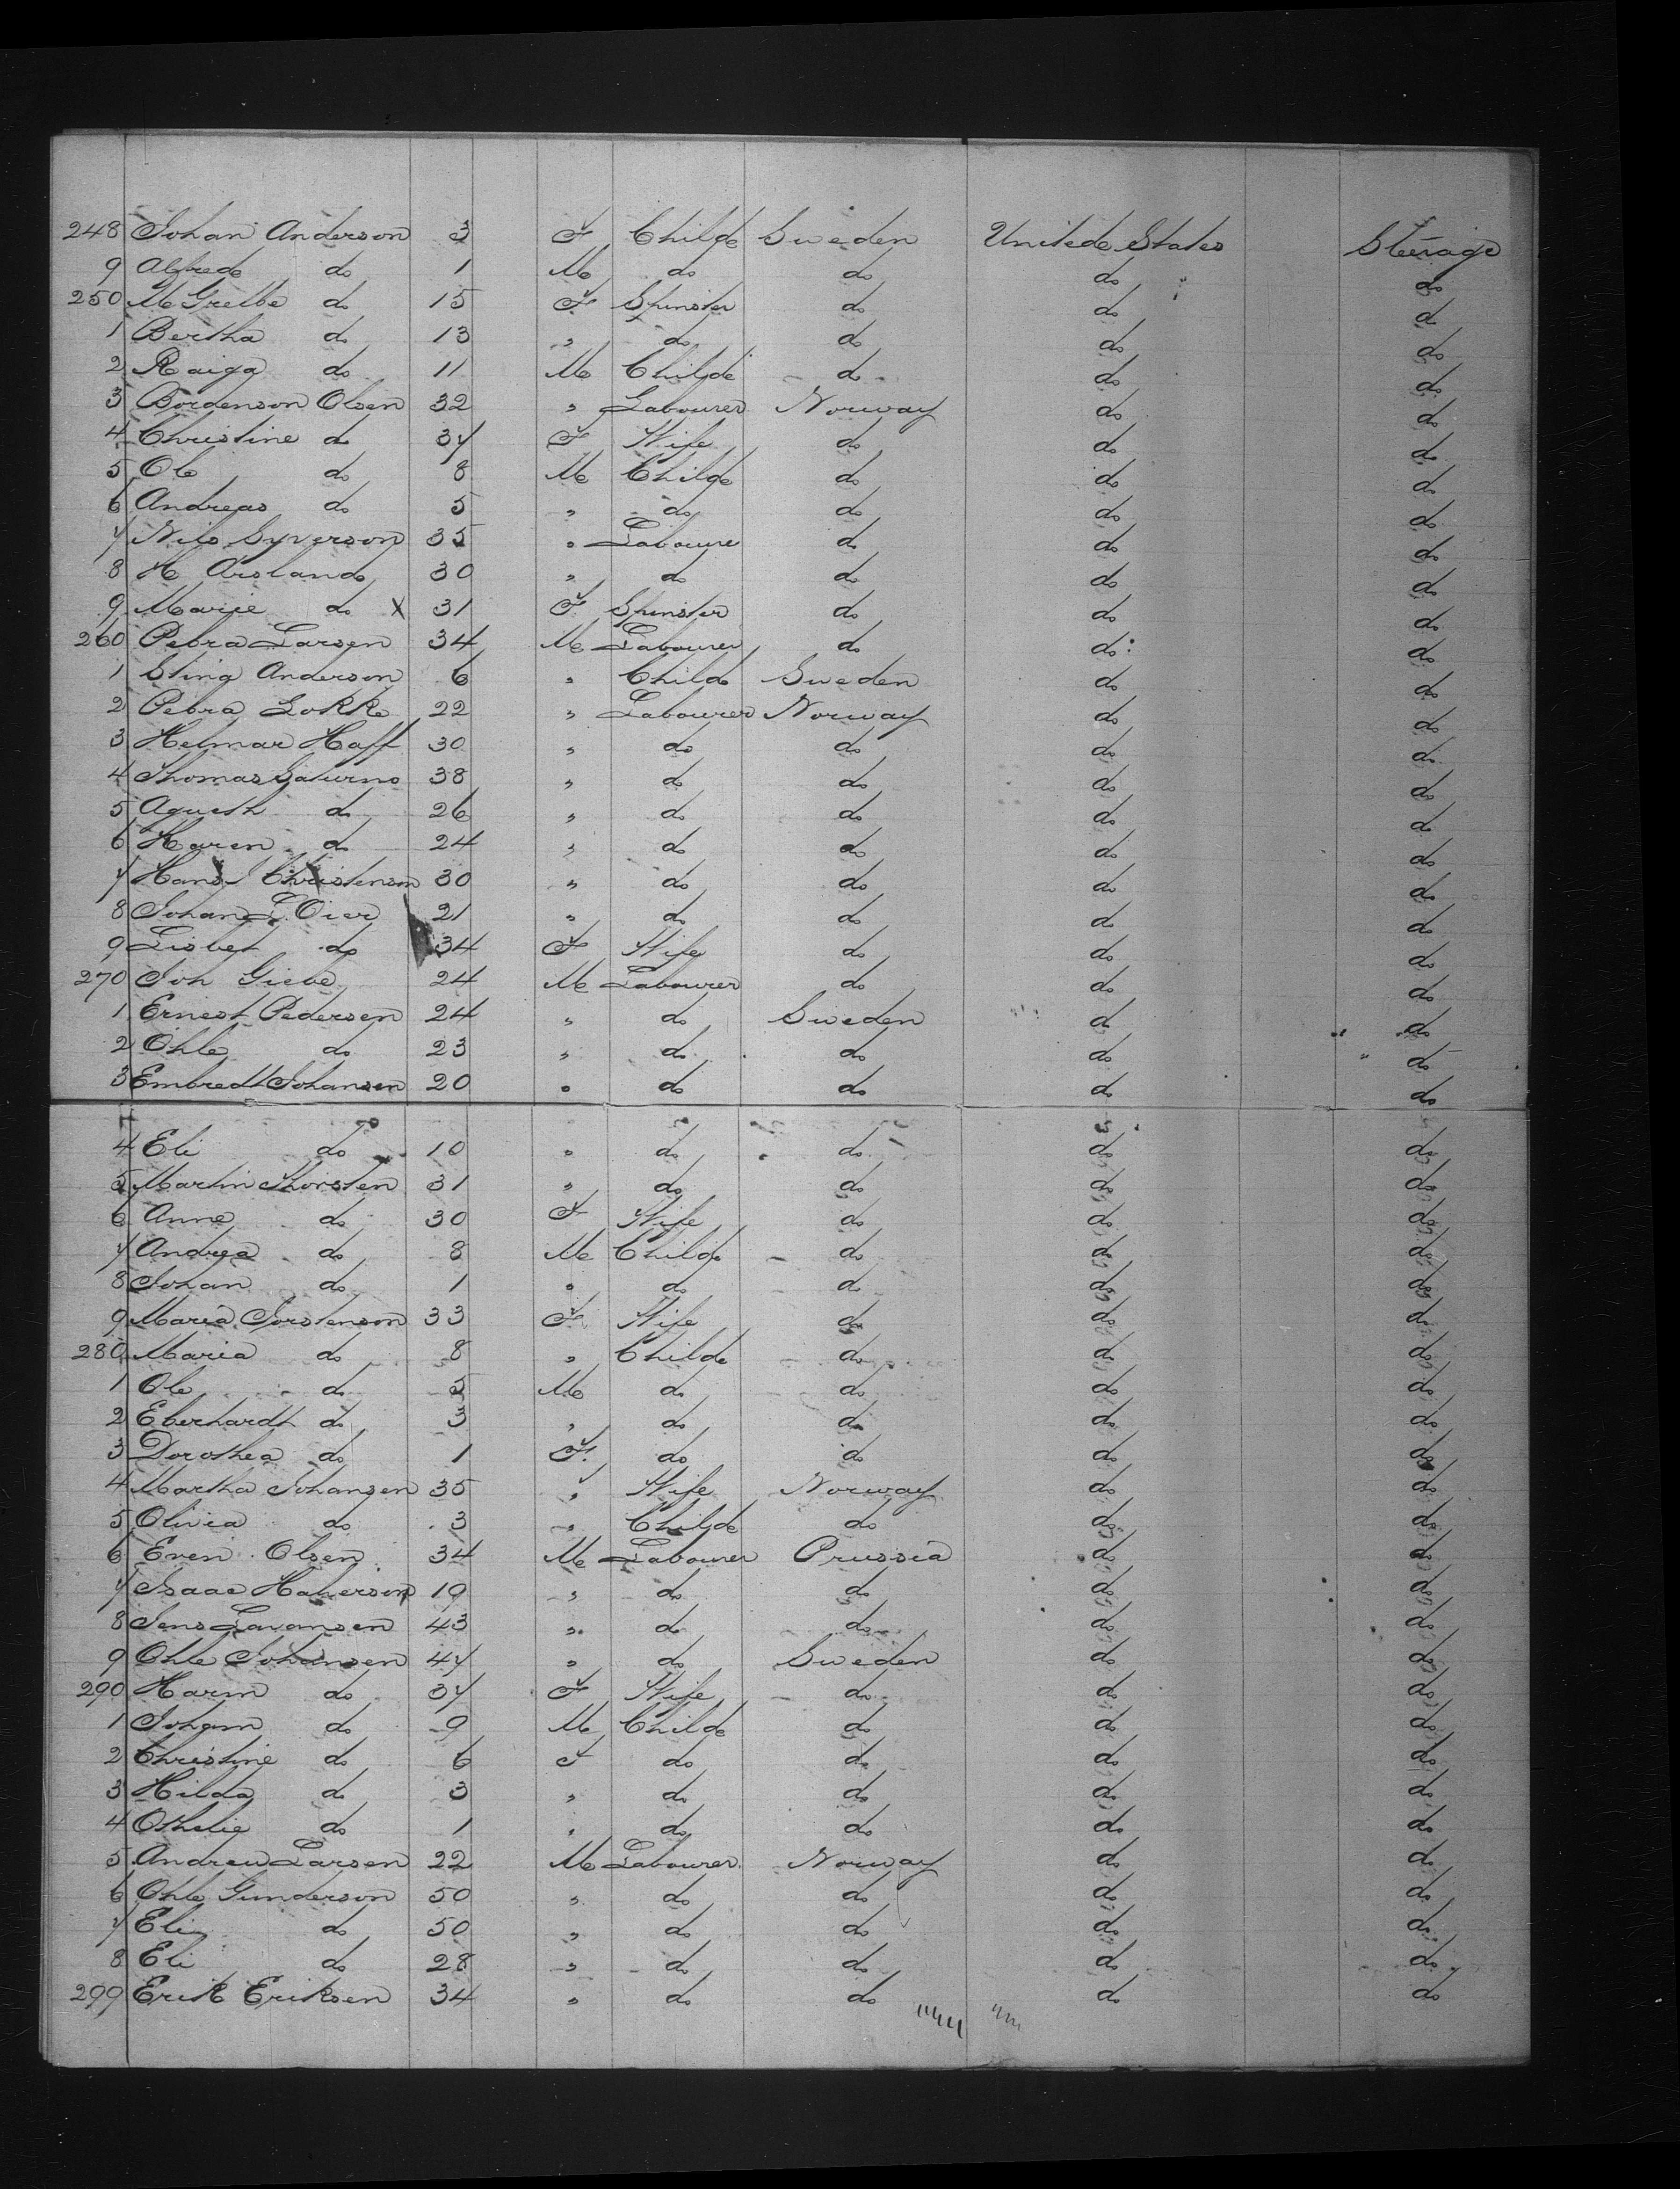 248 Johan Anderson 3 F Childe Sweden Unitede States Steerage
9 Alfrede do 1 M do do do do
250 M Grethe do 15 F Spinster do do do
1 Bertha do 13 " do do do do
2 Raiga do 11 M Childe do do do
3 Borgenson Olsen 32 " Labourer Norway do do
4 Christine do 37 F Wife do do do
5 Ole do 8 M Childe do do do
6 Andreas do 5 " do do do do
7 Nils Syverson 35 " Laboure do do do
8 H Arslando 30 " do do do do
9 Marie do X 31 F Spinster do do do
260 Pebra Larsen 34 M Labourer do do do
1 Sting Anderson 6 " Childe Sweden do do
2 Pebra Lokke 22 " Labourer Norway do do
3 Helmar Haff 30 " do do do do
4 Thomas 38 " do do do do
5 Agueth do 26 " do do do do
6 Karen do 24 " do do do do
7 Hans Christenson 30 " do do do do
8 Johan L. Oier 21 " do do do do
9 Lisbet do 34 F Wife do do do
270 Joh Giebe 24 M Labourer do do do
1 Ernest Pedersen 24 " do Sweden do do
2 Ohle do 23 " do do do do
3 Embredt Johansen 20 " do do do do
4 Eli do 10 " do do do do
5 Martin Thorsten 31 " do do do do
6 Anne do 30 F Wife do do do
7 Andrea do 8 M Childe do do do
8 Johan do 1 " do do do do
9 Maria Torstenson 33 F Wife do do do
280 Maria do 8 " Childe do do do
1 Ole do 5 M do do do do
2 Eberhardt do 3 " do do do do
3 Dorothea do 1 F. do do do do
4 Martha Johansen 35 " Wife Norway do do
5 Olivia do 3 " Childe do do do
6 Even Olsen 34 M Labourer Prussia do do
7 Isaac Halverson 19 " do do do do
8 Jens Lavansen 43 " do do do do
9 Ohle Johansen 47 " do Sweden do do
290 Karin do 37 F Wife do do do
1 Joham do 9 M Childe do do do
2 Christine do 6 F do do do do
3 Hilda do 3 " do do do do
4 Othelie do 1 " do do do do
5 Andrew Larsen 22 M Labourer Norway do do
6 Ohle Gunderson 50 " do do do do
7 Eli do 50 " do do do do
8 Eli do 28 " do do do do
299 Erik Eriksen 34 " do do do do